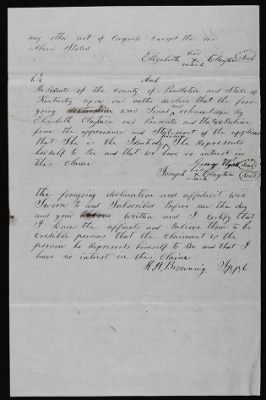 any other act of Congress except the one
Above Stated
her
Elizabeth X Clayton Seal
mark
And
Residents of the County of Pendleton and State of
Kentucky upon our oaths declare that the fore
going declaration was Signed and acknowledged by
Elizabeth Clayton in our Presents and that we believe
from the appearance and Statement of the applicant
that She is the Identical person She Represents
herself to Be and that we have no interest in
this Claim
George Seal
his
Joseph X Clayton Seal
mark
the foregoing declaration and affidavit was
Sworn to and Subscribed Before me the day
and year above written and I certify that
I know the affiants and Believe them to be
credible persons that the Claimant is the
person he Represents himself to Be and that I
have no interest in this Claim
Browning